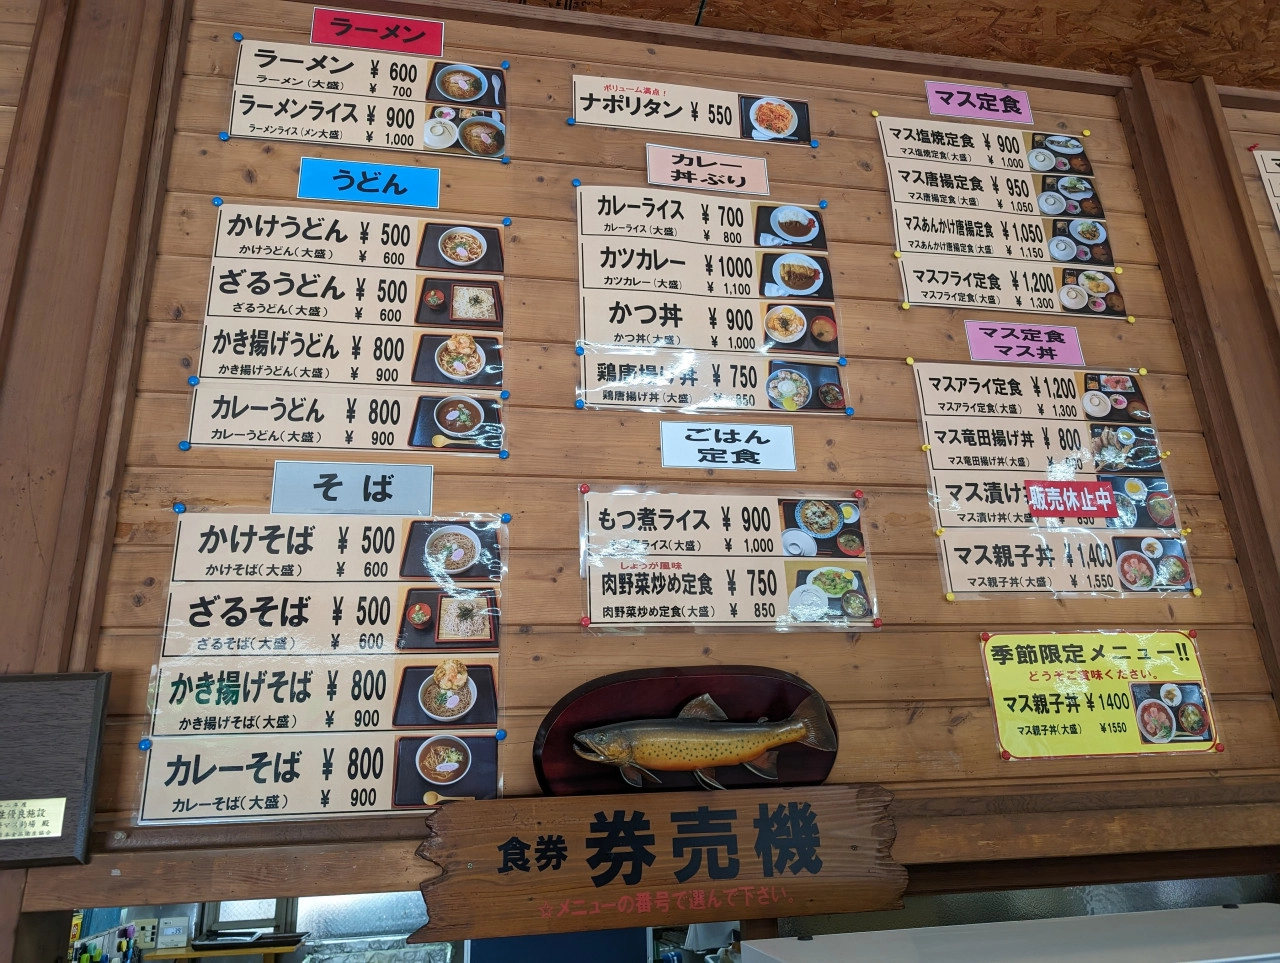 ラーメン
ラーメン ¥ 600
ラーメン(大盛) ¥ 700
ラーメンライス ¥ 900
ラーメンライス(メン大盛) ¥ 1,000
うどん
かけうどん ¥ 500
かけうどん(大盛) ¥ 600
ざるうどん ¥ 500
ざるうどん(大盛) ¥ 600
かき揚げうどん ¥ 800
かき揚げうどん(大盛) ¥ 900
カレーうどん ¥ 800
カレーうどん(大盛) ¥ 900
そば
かけそば ¥ 500
かけそば(大盛) ¥ 600
ざるそば ¥ 500
ざるそば(大盛) ¥ 600
かき揚げそば ¥ 800
かき揚げそば(大盛) ¥ 900
カレーそば ¥ 800
カレーそば(大盛) ¥ 900
ボリューム満点!
ナポリタン ¥ 550
カレー
丼ぶり
カレーライス ¥ 700
カレーライス(大盛) ¥ 800
カツカレー ¥1000
カツカレー(大盛) ¥ 1,100
かつ丼 ¥ 900
かつ丼(大盛) ¥ 1,000
鶏唐揚げ丼 ¥ 750
鶏唐揚げ丼(大盛) ¥ 850
ごはん
定食
もつ煮ライス ¥ 900
ライス(大盛) ¥ 1,000
しょうが風味
肉野菜炒め定食 ¥ 750
肉野菜炒め定食(大盛) ¥ 850
マス定食
マス塩焼定食 ¥ 900
マス塩焼定食(大盛) ¥ 1,000
マス唐揚定食 ¥ 950
マス唐揚定食(大盛) ¥ 1,050
マスあんかけ唐揚定食 ¥1,050
マスあんかけ唐揚定食(大盛) ¥ 1,150
マスフライ定食 ¥1,200
マスフライ定食(大盛) ¥ 1,300
マス定食
マス丼
マスアライ定食 ¥1,200
マスアライ定食(大盛) ¥ 1,300
マス竜田揚げ丼 ¥ 800
マス竜田揚げ丼(大盛) ¥
マス漬け
販売休止中
マス漬け丼(大盛) 850
マス親子丼 ¥1,400
マス親子丼(大盛) ¥ 1,550
季節限定メニュー!!
どうぞご賞味ください。
マス親子丼 ¥1400
マス親子丼(大盛) ¥1550
食券 券売機
☆メニューの番号で選んで下さい。
優良施設